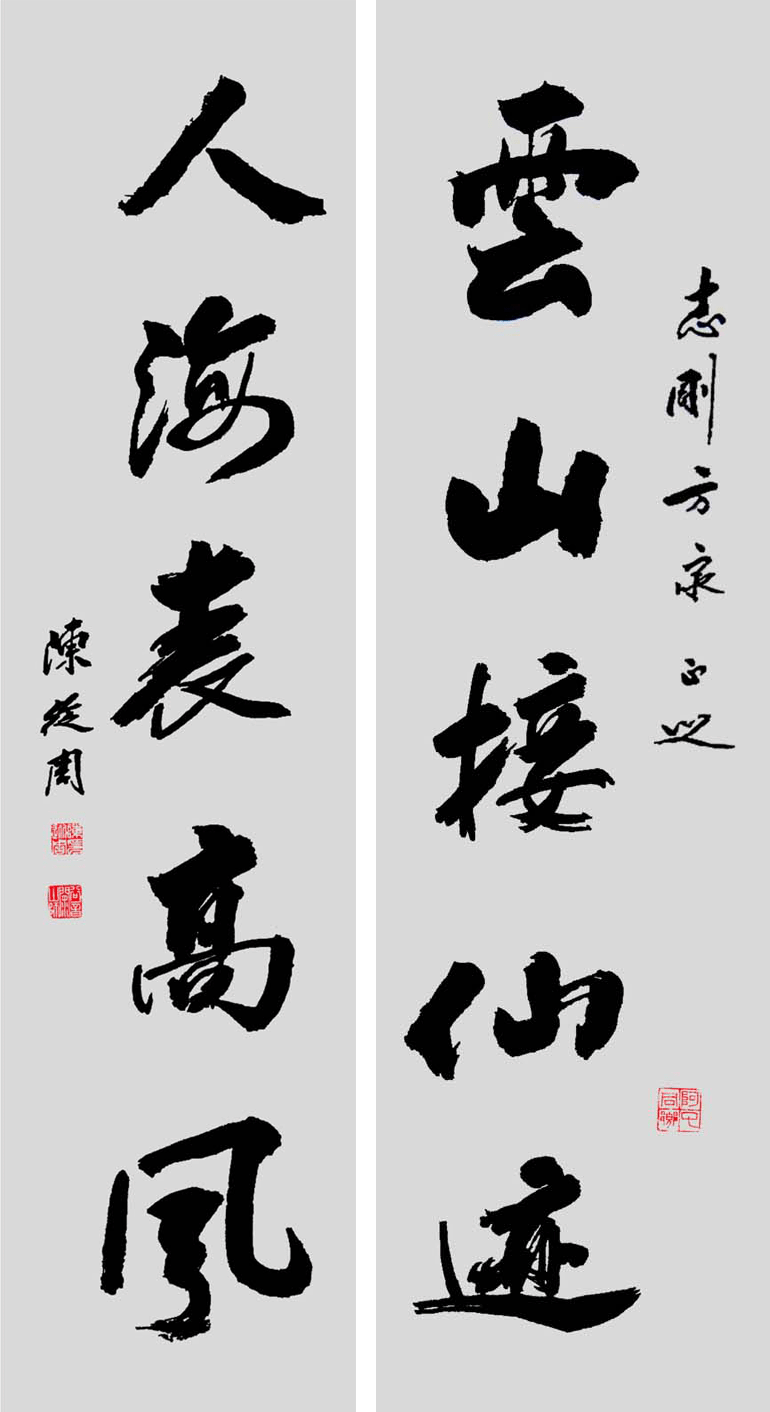 志剛方家正之
雲山接仙迹
人海表高風
陳從周